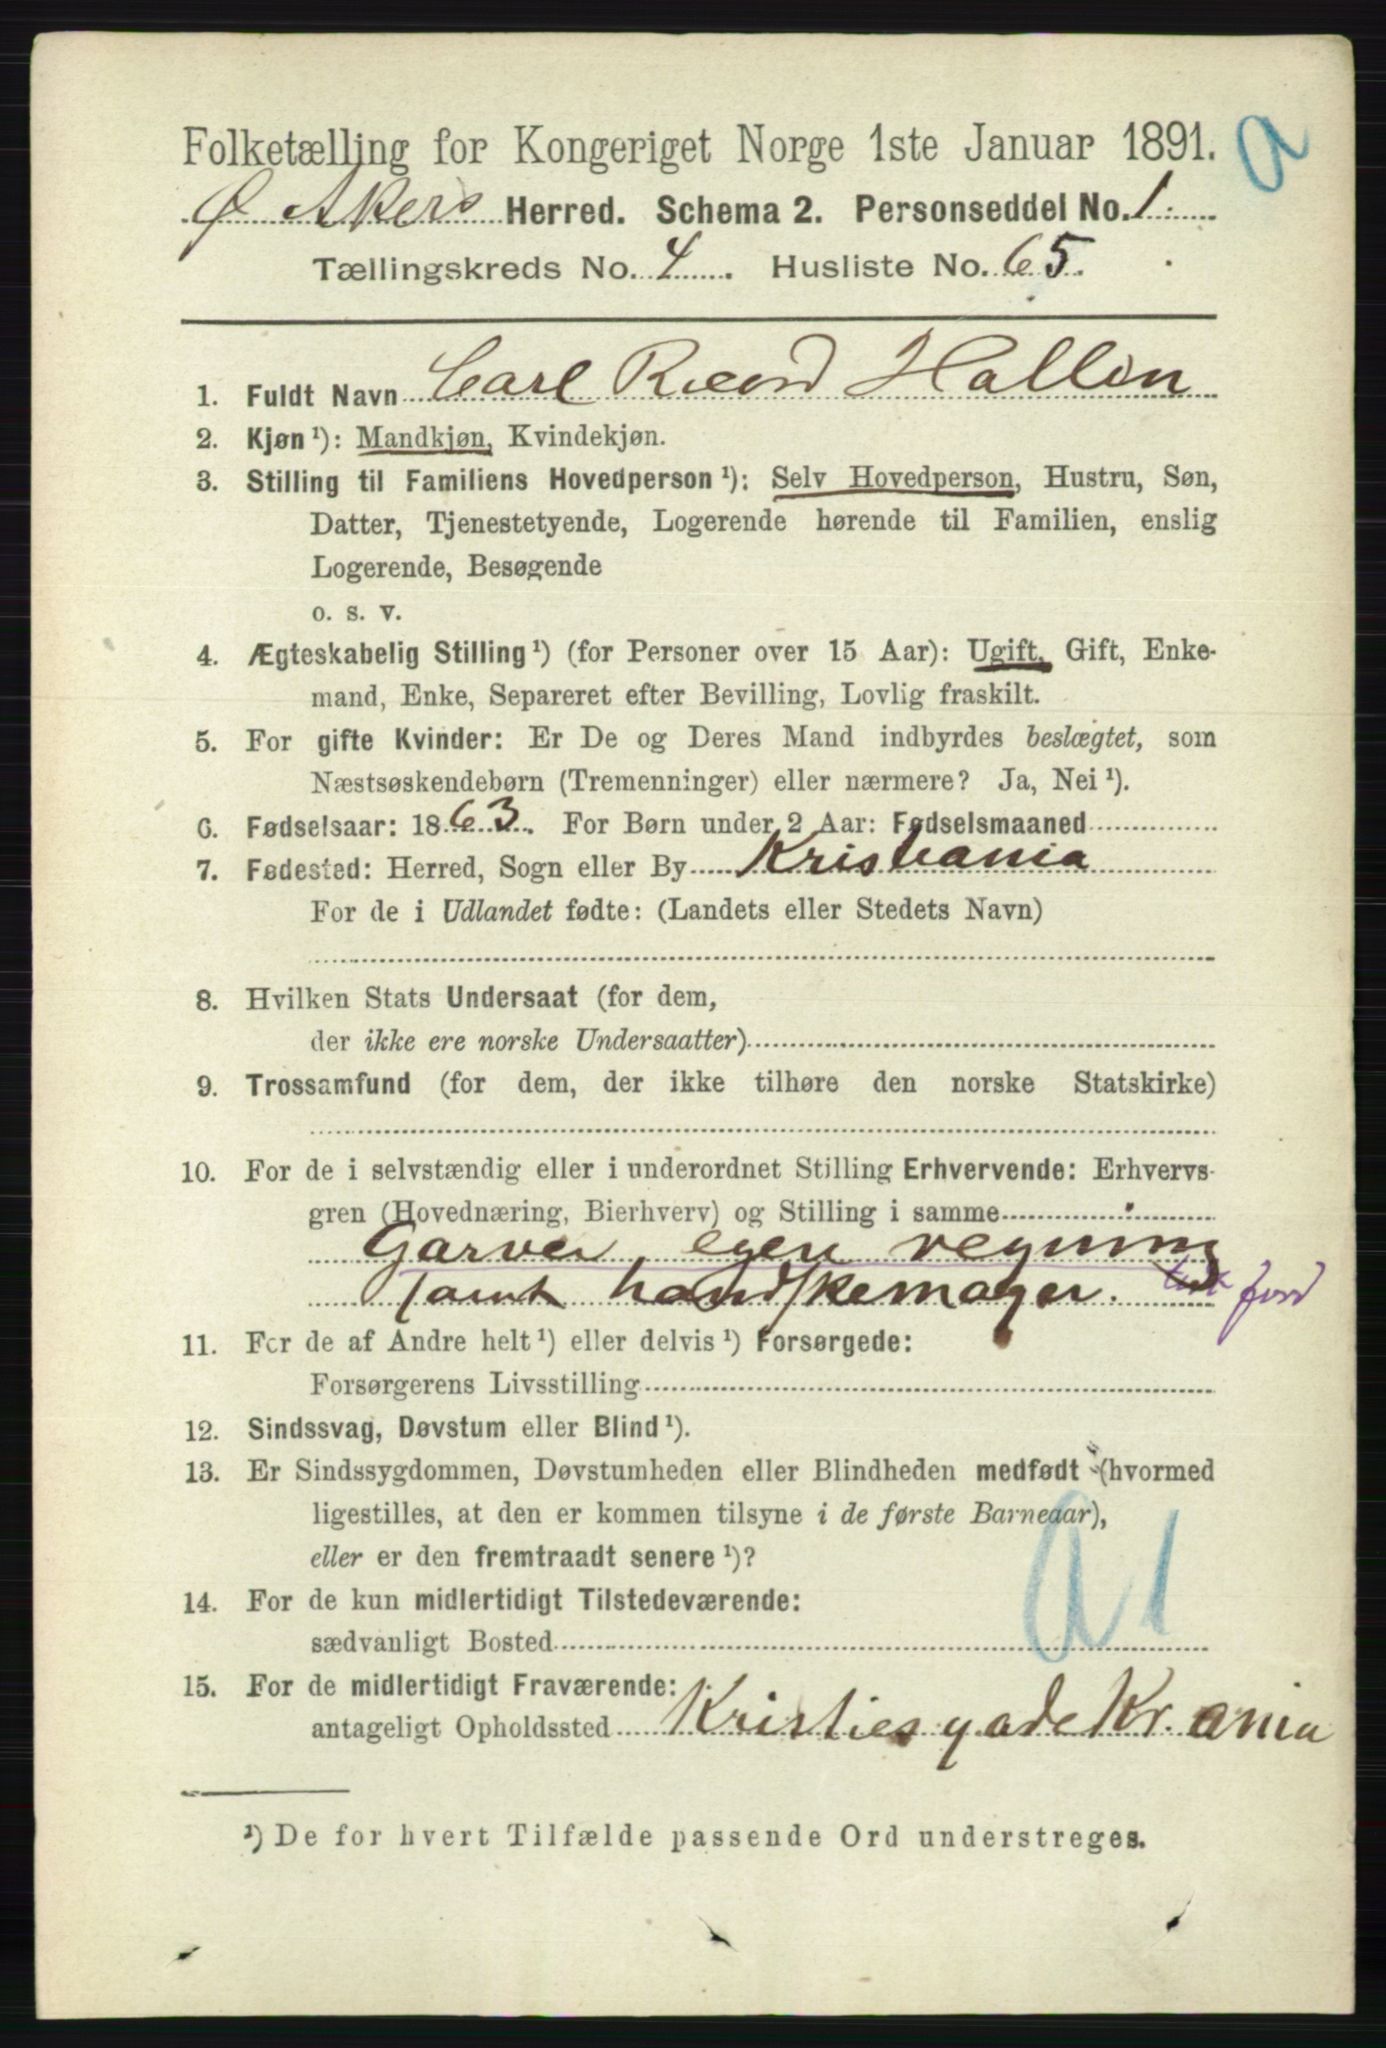 Folketælling for Kongeriget Norge 1ste Januar 1891.
a
Ø Akers Herred. Schema 2. Personseddel No. 1
Tællingskreds No. 4. Husliste No. 65.
1. Fuldt Navn Carl Hallen
2. Kjøn ¹): Mandkjøn, Kvindekjøn.
3. Stilling til Familiens Hovedperson ¹): Selv Hovedperson, Hustru, Søn,
Datter, Tjenestetyende, Logerende hørende til Familien, enslig
Logerende, Besøgende
o. s. v.
4. Ægteskabelig Stilling ¹) (for Personer over 15 Aar): Ugift, Gift, Enke-
mand, Enke, Separeret efter Bevilling, Lovlig fraskilt.
5. For gifte Kvinder: Er De og Deres Mand indbyrdes beslægtet, som
Næstsøskendebørn (Tremenninger) eller nærmere? Ja, Nei ¹).
6. Fødselsaar: 1863. For Børn under 2 Aar: Fødselsmaaned
7. Fødested: Herred, Sogn eller By Kristiania
For de i Udlandet fødte: (Landets eller Stedets Navn)
8. Hvilken Stats Undersaat (for dem,
der ikke ere norske Undersaatter)
9. Trossamfund (for dem, der ikke tilhøre den norske Statskirke)
10. For de i selvstændig eller i underordnet Stilling Erhvervende: Erhvervs-
gren (Hovednæring, Bierhverv) og Stilling i samme
Garver egen regning
samt handskemager.
11. For de af Andre helt ¹) eller delvis ¹) Forsørgede:
Forsørgerens Livsstilling
12. Sindssvag, Døvstum eller Blind ¹).
13. Er Sindssygdommen, Døvstumheden eller Blindheden medfødt (hvormed
ligestilles, at den er kommen tilsyne i de første Barneaar),
eller er den fremtraadt senere ¹)?
a1
14. For de kun midlertidigt Tilstedeværende:
sædvanligt Bosted
15. For de midlertidigt Fraværende:
antageligt Opholdssted Kristiesgade Kr.ania
¹) De for hvert Tilfælde passende Ord understreges.